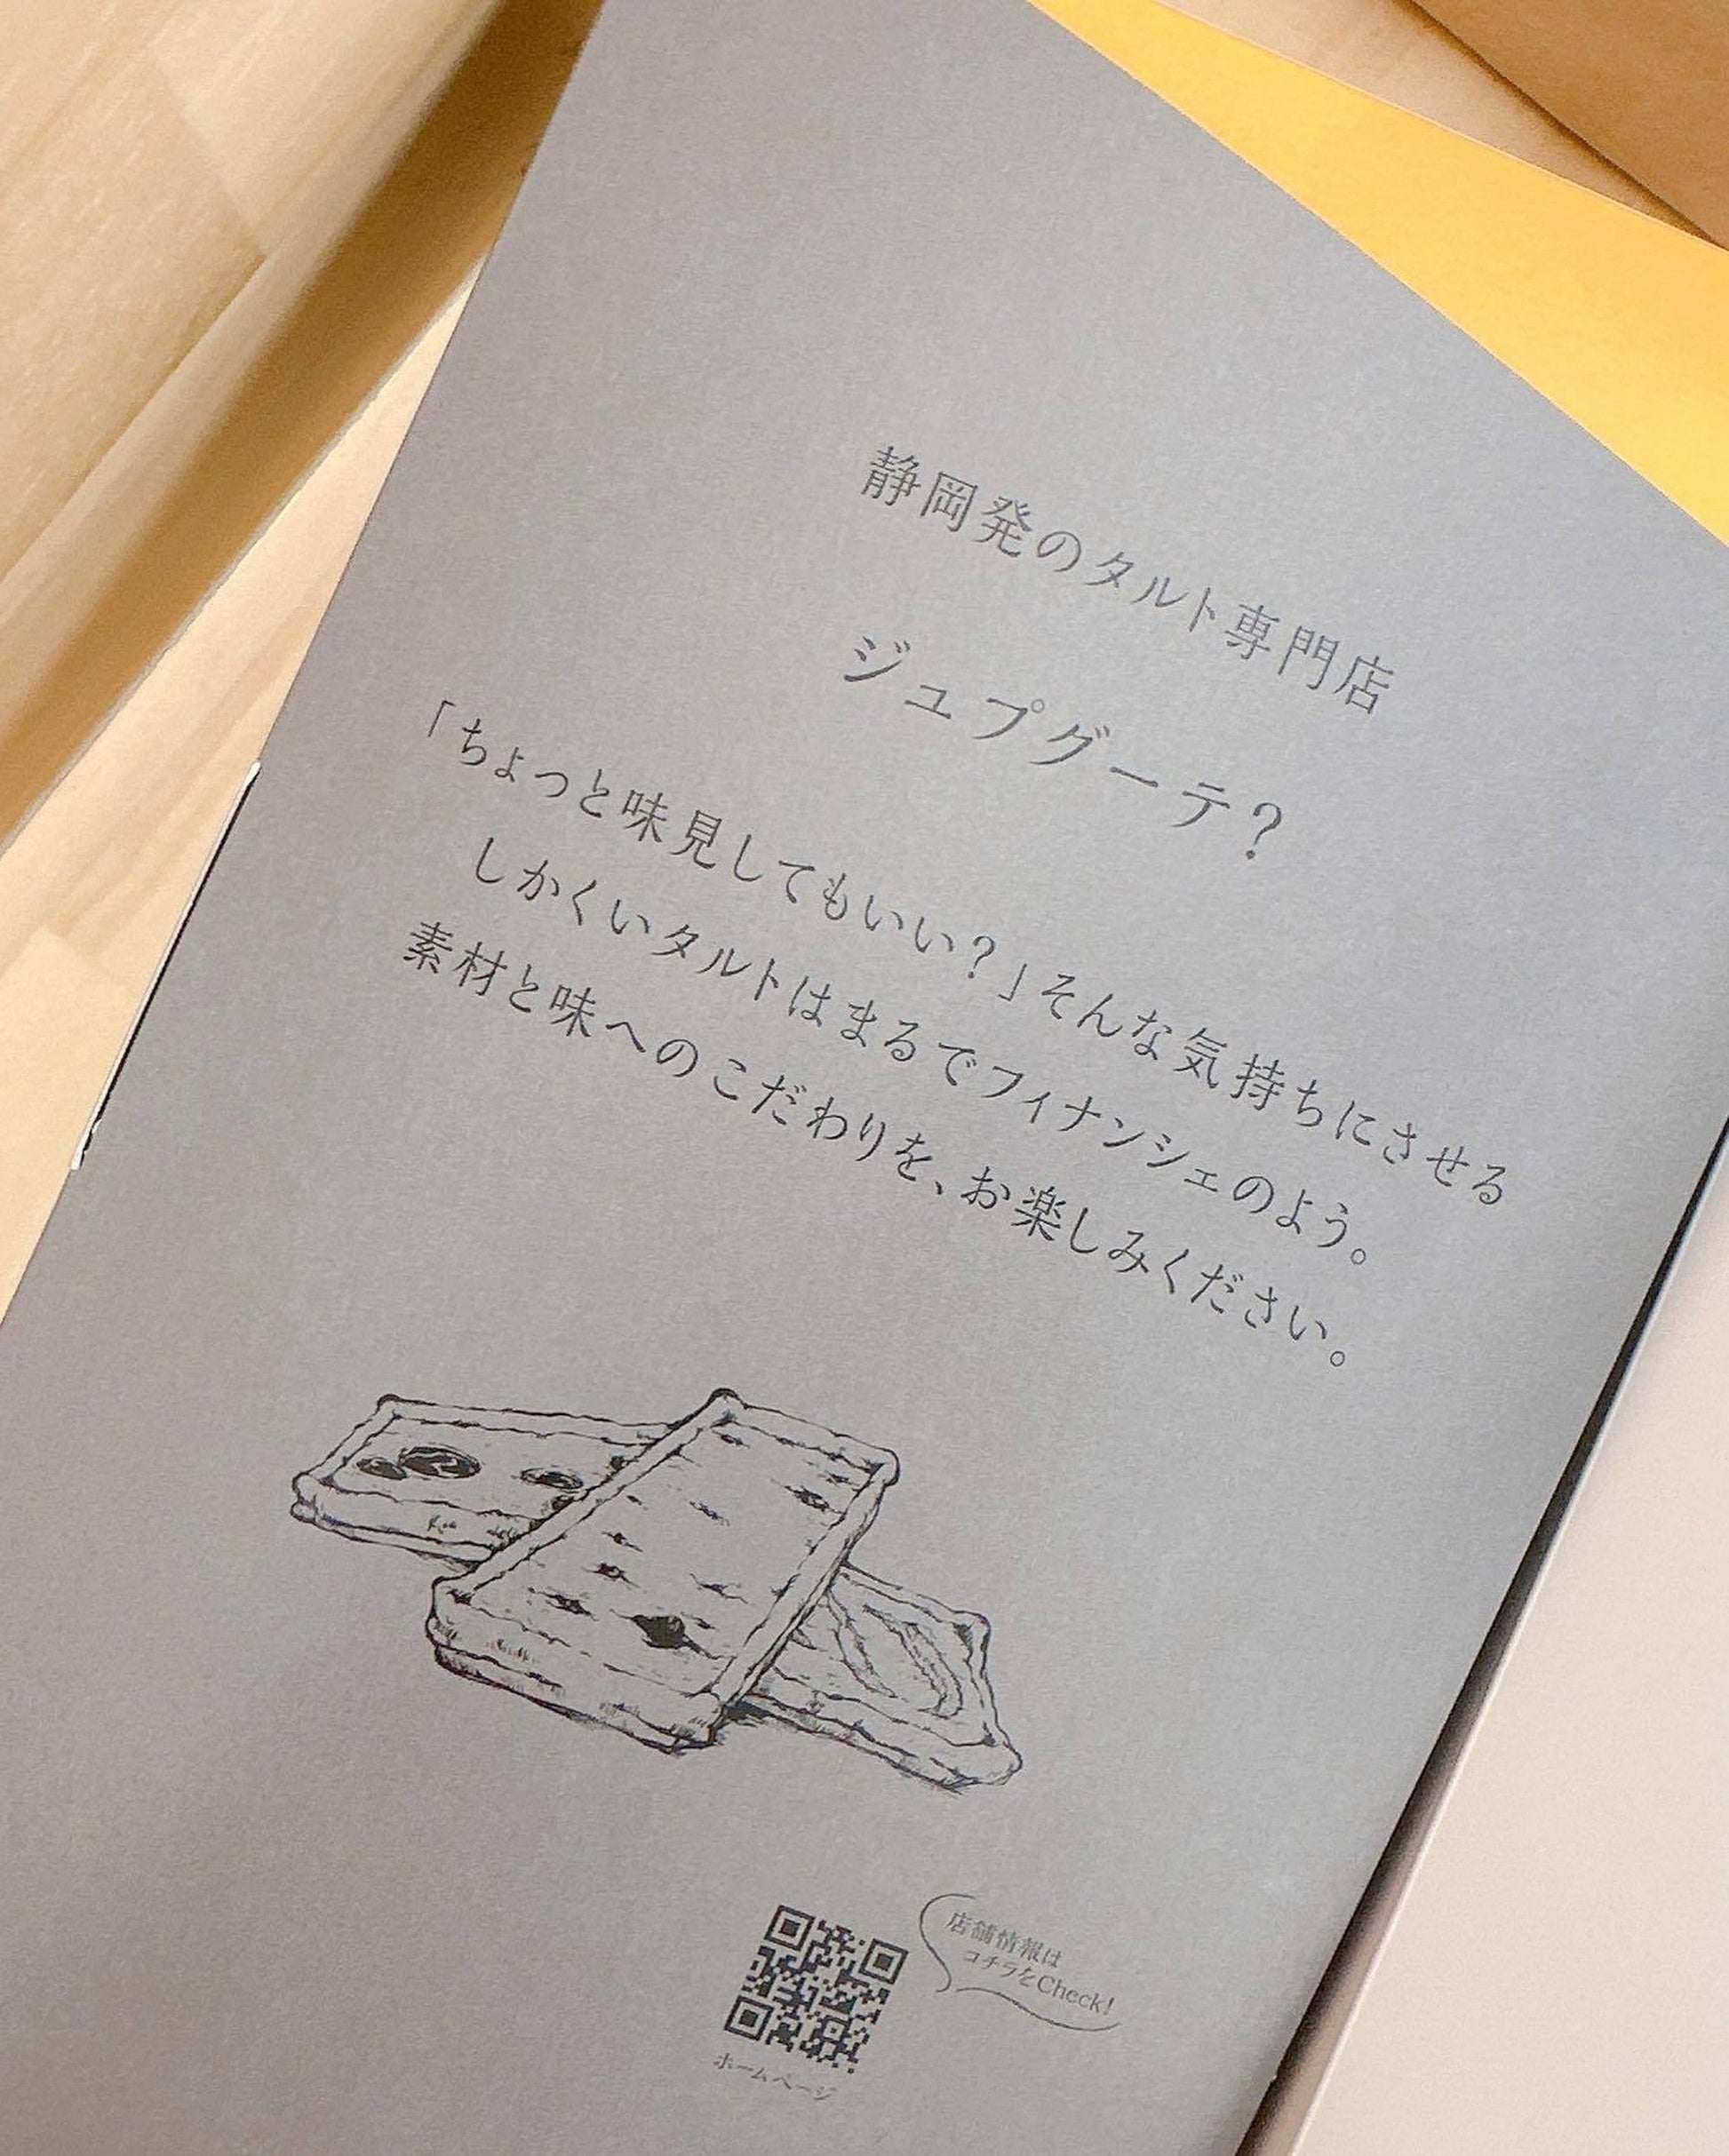 静岡発のタルト専門店
ジュプグーテ?
「ちょっと味見してもいい?」そんな気持ちにさせる
しかくいタルトはまるでフィナンシェのよう。
素材と味へのこだわりを、お楽しみください。
店舗情報は
コチラをCheck!
ホームページ